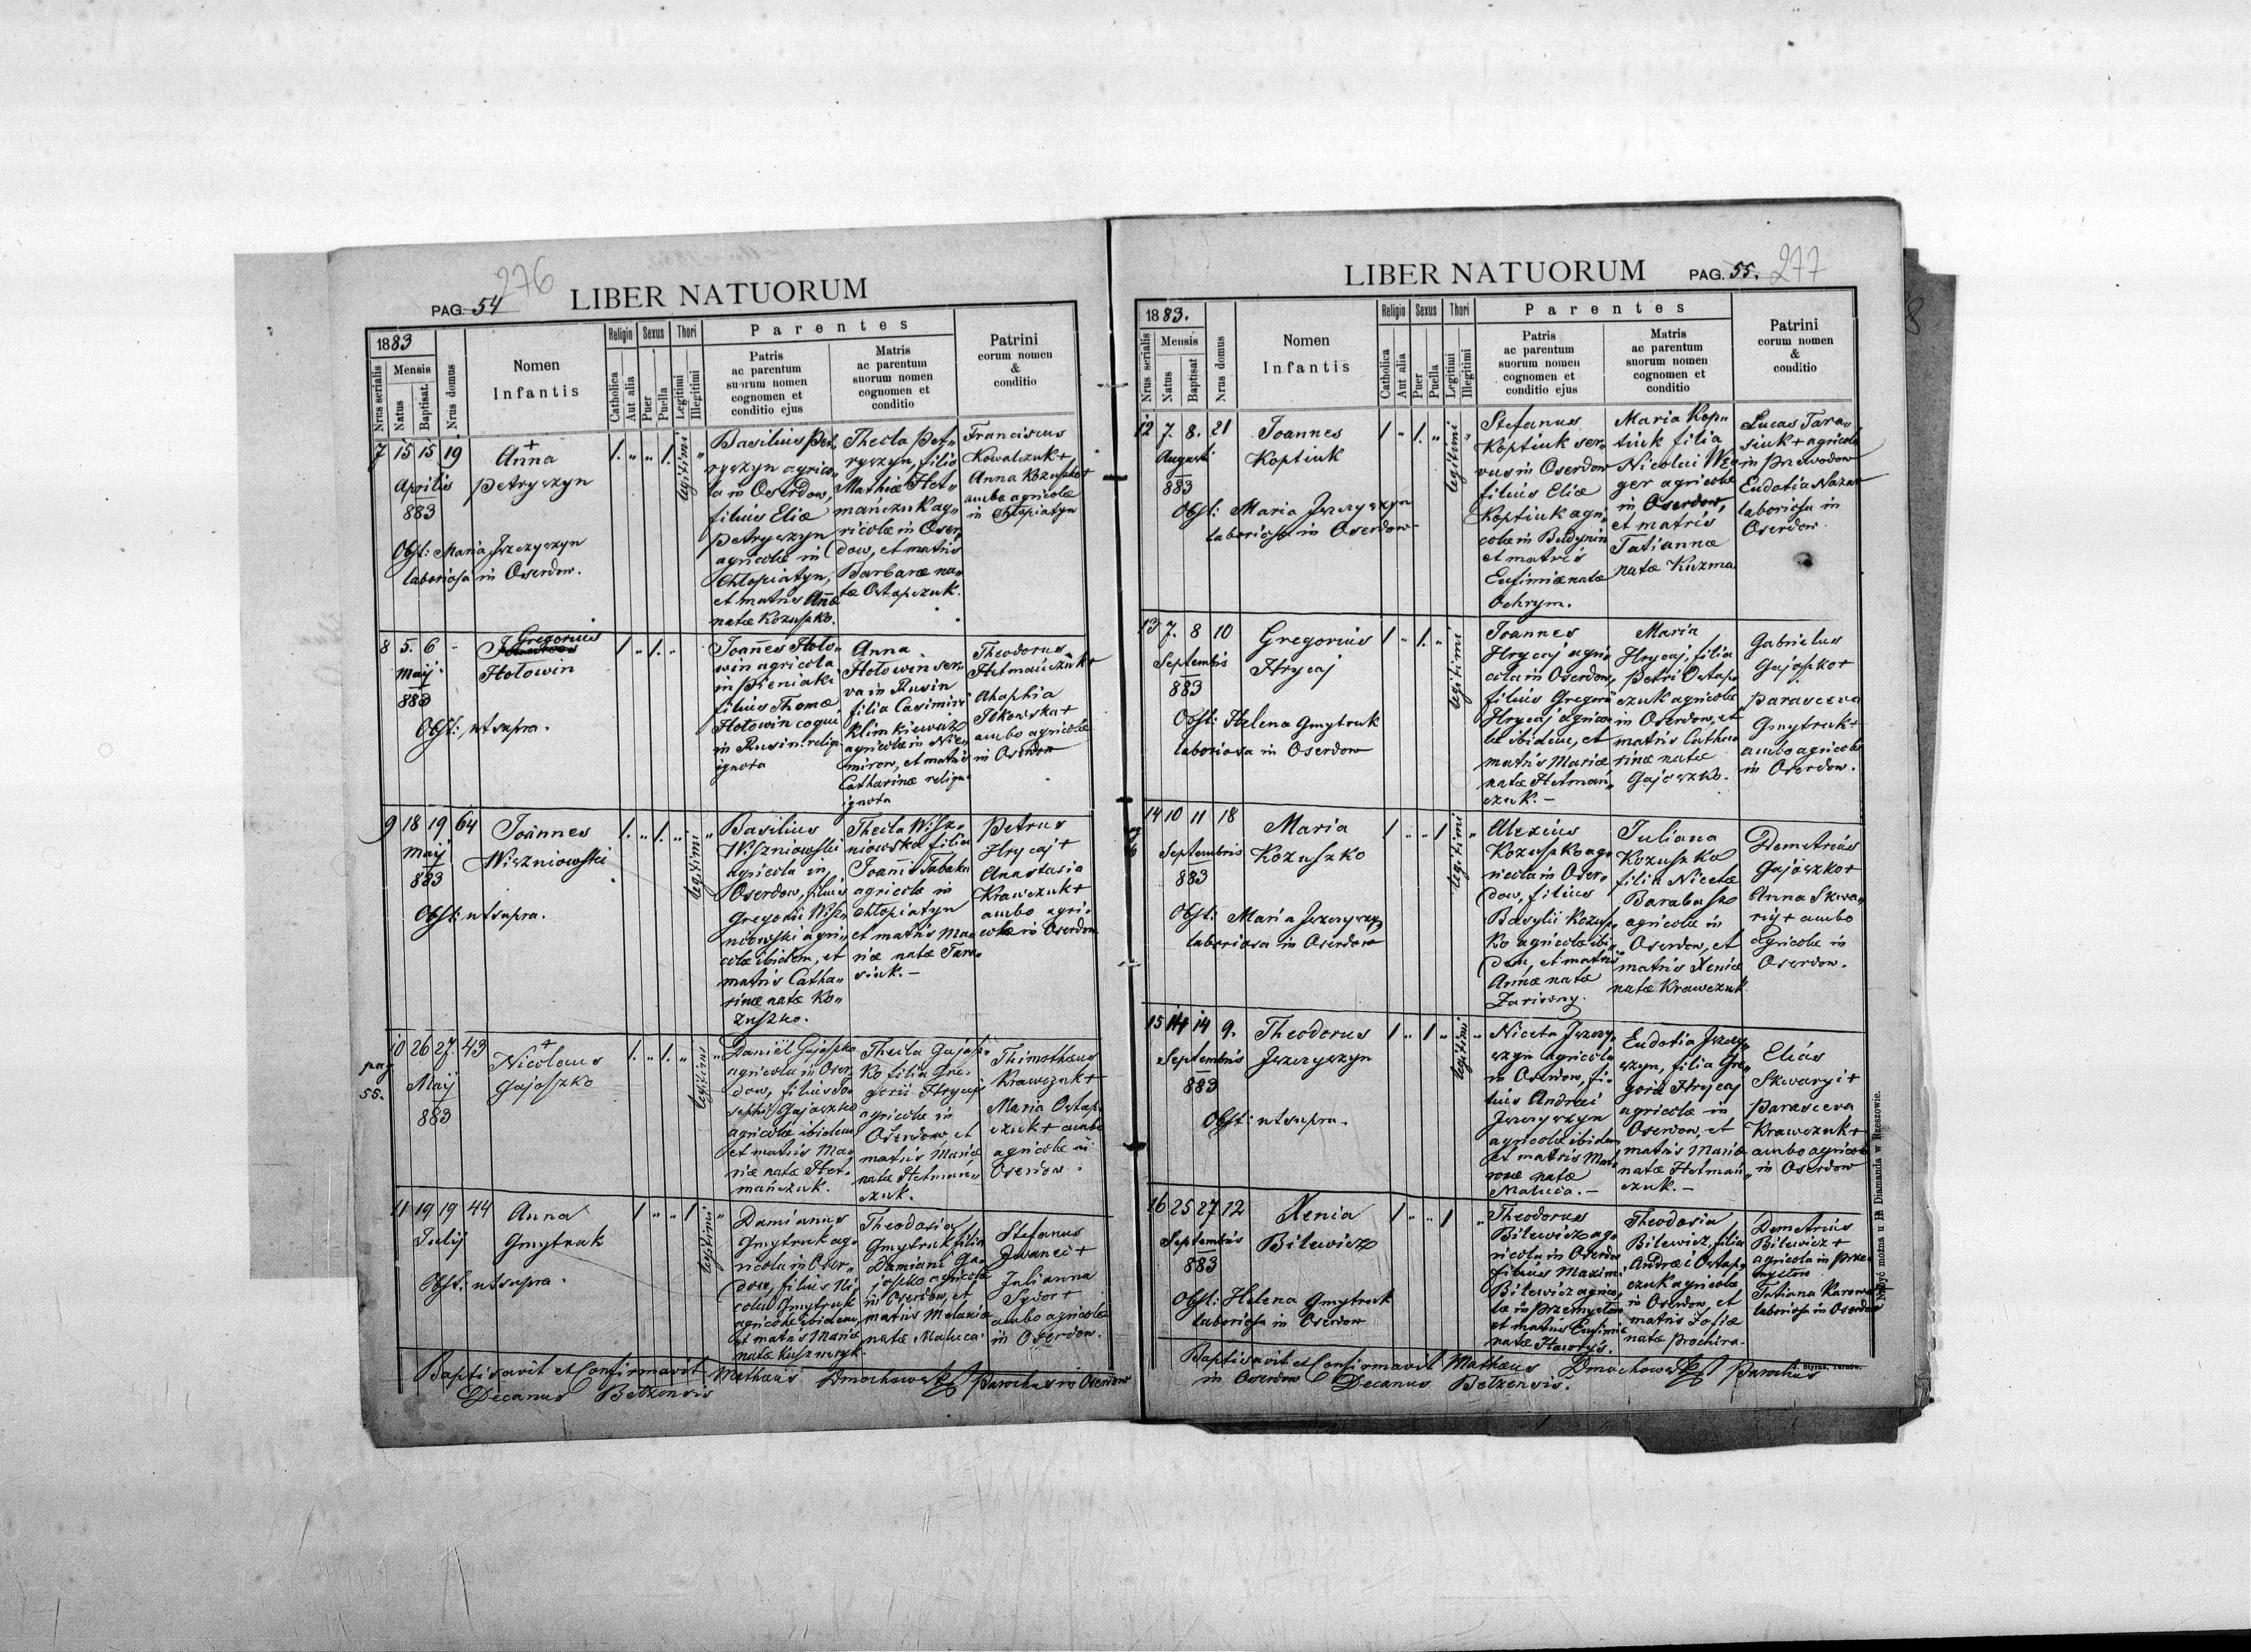 276
PAG. 54
LIBER NATUORUM
1883
Nrus serialis
Mensis
Natus
Baptisat.
Nrus domus
Nomen
Infantis
Religio
Catholica
Aut alia
Sexus
Puer
Puella
Thori
Legitimi
Illegitimi
Parentes
Patris
ac parentum
suorum nomen
cognomen et
conditio ejus
Matris
ac parentum
suorum nomen
cognomen et
conditio
Patrini
eorum nomen
&
conditio
7 15 15 19
Aprilis
883
+
Anna
Petryszyn
Obst: Maria Jszczyszyn
laboriosa in Oserdow.
1. „ „ 1. legitimi „
Basilius Pet„
ryszyn agrico„
la in Oserdow,
filius Eliæ
Petryszyn
agricolæ in
Chłopiatyn,
et matris Annæ
natæ Kozuszko.
Thecla Pet„
ryszyn, filia
Mathiæ Het„
mańczuk ag„
ricolæ in Oser„
dow, et matris
Barbaræ na„
tæ Ostapczuk.
Franciscus
Kowalczuk +
Anna Kozuszko +
ambo agricolæ
in Chłopiatyn
8 5. 6 „
Maij
883
Gregorius
Hołowin
Obst: ut supra.
1 „ 1. „
Joannes Hoło„
win agricola
in Pieniaki
filius Thomæ
Hołowin coqui
in Rusin religi
ignota
Anna
Hołowin ser„
va in Rusin
filia Casimiri
Klimkiewicz
agricolæ in Nie„
mirow, et matris
Catharinæ religu
ignota
Theodorus
Hetmańczuk +
Ahaphia
ambo agricolæ
in Oserdow
9 18 19 64
Maij
883
Joannes
Wiszniowski
Obst: ut supra.
1. „ 1. „ legitimi „
Basilius
Wiszniowski
agricola in
Oserdow, filius
Gregorii Wisz„
niowski agri„
colæ ibidem, et
matris Catha„
rinæ natæ Ko„
zuszko.
Thecla Wisz„
niowska filia
Joanni Tabaka
agricolæ in
Chłopiatyn
et matris Ma„
riæ natæ Tara„
siuk. –
Petrus
Hrycaj +
Anastasia
Krawczuk +
ambo agri„
colæ in Oserdow
pag
55.
10 26 27. 43
Maij
883
+
Nicolaus
Gajoszko
1. „ 1. „ legitimi „
Daniël Gajoszko
agricola in Oser„
dow, filius Jo„
sephi Gajoszko
agricolæ ibidem
et matris Ma„
riæ natæ Het„
mańczuk.
Thecla Gajosz„
ko filia Gre„
gorii Hrycaj
agricolæ in
Oserdow, et
matris Mariæ
natæ Hetmań„
czuk.
Thimotheus
Krawczuk +
Maria Ostap„
czuk + ambo
agricolæ in
Oserdow.
11 19 19 44
Julij
Anna
Gmytruk
Obst: ut supra.
1 „ „ 1 legitimi „
Damianus
Gmytruk ag„
ricola in Oser„
dow, filius Ni
colai Gmytruk
agricolæ ibidem,
et matris Mariæ
Theodosia
Gmytruk filia
Damiani Ga„
joszko agricolæ
in Oserdow, et
matris Melaniæ
natæ Maluca.
Stefanus
Iwanci +
Julianna
Sydor +
ambo agricolæ
in Oserdow.
Baptisavit et Confirmavit Mathæus Dmochowski Parochus in Oserdow
Decanus Bełzensis
LIBER NATUORUM
PAG. 55.
277
1883.
Nrus serialis
Mensis
Natus
Baptisat
Nrus domus
Nomen
Infantis
Religio
Catholica
Aut alia
Sexus
Puer
Puella
Thori
Legitimi
Illegitimi
Parentes
Patris
ac parentum
suorum nomen
cognomen et
conditio ejus
Matris
ac parentum
suorum nomen
cognomen et
conditio
Patrini
eorum nomen
&
conditio
12 7. 8. 21
Augusti
883
Joannes
Koptiuk
Obst: Maria Jszczyszyn
laboriosa in Oserdow
1 „ 1. „ legitimi „
Stefanus
Koptiuk ser„
vus in Oserdow
filius Eliæ
Koptiuk agri„
colæ in Budynin
et matris
Eufimiæ natæ
Ochrym.
Maria Kop„
tiuk filia
Nicolai Wę„
ger agricolæ
in Oserdow,
et matris
Tatiannæ
natæ Kuzma
Lucas Tara„
siuk + agricola
in Przewodow
Eudotia Nazar
laboriosa in
Oserdow.
13 7. 8 10
Septembris
883
Gregorius
Hrycaj
Obst: Helena Gmytruk
laboriosa in Oserdow
1 „ 1. „ legitimi
Joannes
Hrycaj agri„
cola in Oserdow,
filius Gregorii
Hrycaj agrico„
læ ibidem, et
matris Mariæ
natæ Hetmań„
czuk. –
Maria
Hrycaj, filia
Petri Ostap„
czuk agricolæ
in Oserdow, et
matris Catha„
rinæ natæ
Gajoszko.
Gabrielus
Gajoszko +
Parasceva
Gmytruk +
ambo agricolæ
in Oserdow.
14 10 11 18
Septembris
883
Maria
Kozuszko
Obst: Maria Jszczyszyn
laboriosa in Oserdow
1 „ „ 1 legitimi „
Alexius
Kozuszko ag„
ricola in Oser„
dow, filius
Basylii Kozusz„
ko agricolæ ibi„
dem, et matris
Annæ natæ
Juliana
Kozuszko
filia Nicetæ
Barabasz
agricolæ in
Oserdow, et
matris Xeniæ
natæ Krawczuk
Demetrius
Gajoszko +
Anna Skwa„
ryj + ambo
agricolæ in
Oserdow.
15 14 14 9.
Septembris
883
Theodorus
Jszczyszyn
Obst: ut supra.
1 „ 1 „ legitimi „
Niceta Jszczy„
szyn agricola
in Oserdow, fi„
lius Andrei
Jszczyszyn
agricolæ ibidem
et matris Mat„
ronæ natæ
Maluca. –
Eudotia Jszczy„
szyn, filia Gre„
gorii Hrycaj
agricolæ in
Oserdow, et
matris Mariæ
natæ Hetmań„
czuk. –
Elias
Skwaryi +
Parasceva
Krawczuk +
ambo agricolæ
in Oserdow
16 25 27 12
Septembris
883
Xenia
Bilewicz
Obst: Helena Gmytruk
laboriosa in Oserdow
1 „ „ 1 „
Theodorus
Bilewicz ag„
ricola in Oserdow
filius Maximi
Bilewicz agrico„
læ in Przemysłow
et matris Eufimiæ
natæ Hawryś.
Theodosia
Bilewicz, filia
Andrei Ostap„
czuk agricolæ
in Oserdow, et
matris Zofiæ
natæ Prochira.
Demetrius
Bilewicz +
agricola in Prze„
mysłow
Tatiana
laboriosa in Oserdow
Baptisavit et Confirmavit Mathæus Dmochowski Parochus
in Oserdow Decanus Bełzensis.
Nabyć można u H Diamanda w Rzeszowie.